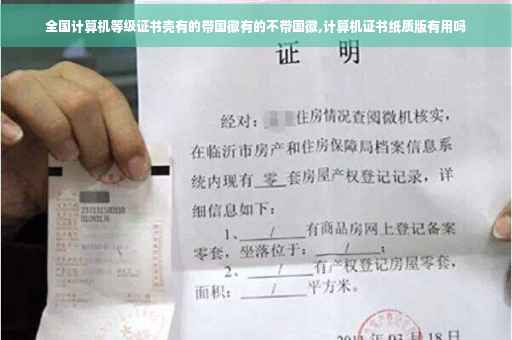 全国计算机等级证书壳有的带国徽有的不带国徽,计算机证书纸质版有用吗
证 明
经对: 住房情况查阅微机核实,
在临沂市房产和住房保障局档案信息系
统内现有 零 套房屋产权登记记录, 详
细信息如下:
1、 / 有商品房网上登记备案
零套, 坐落位于: / ;
2、 / 有产权登记房屋零套,
面积: / 平方米。
03月18日